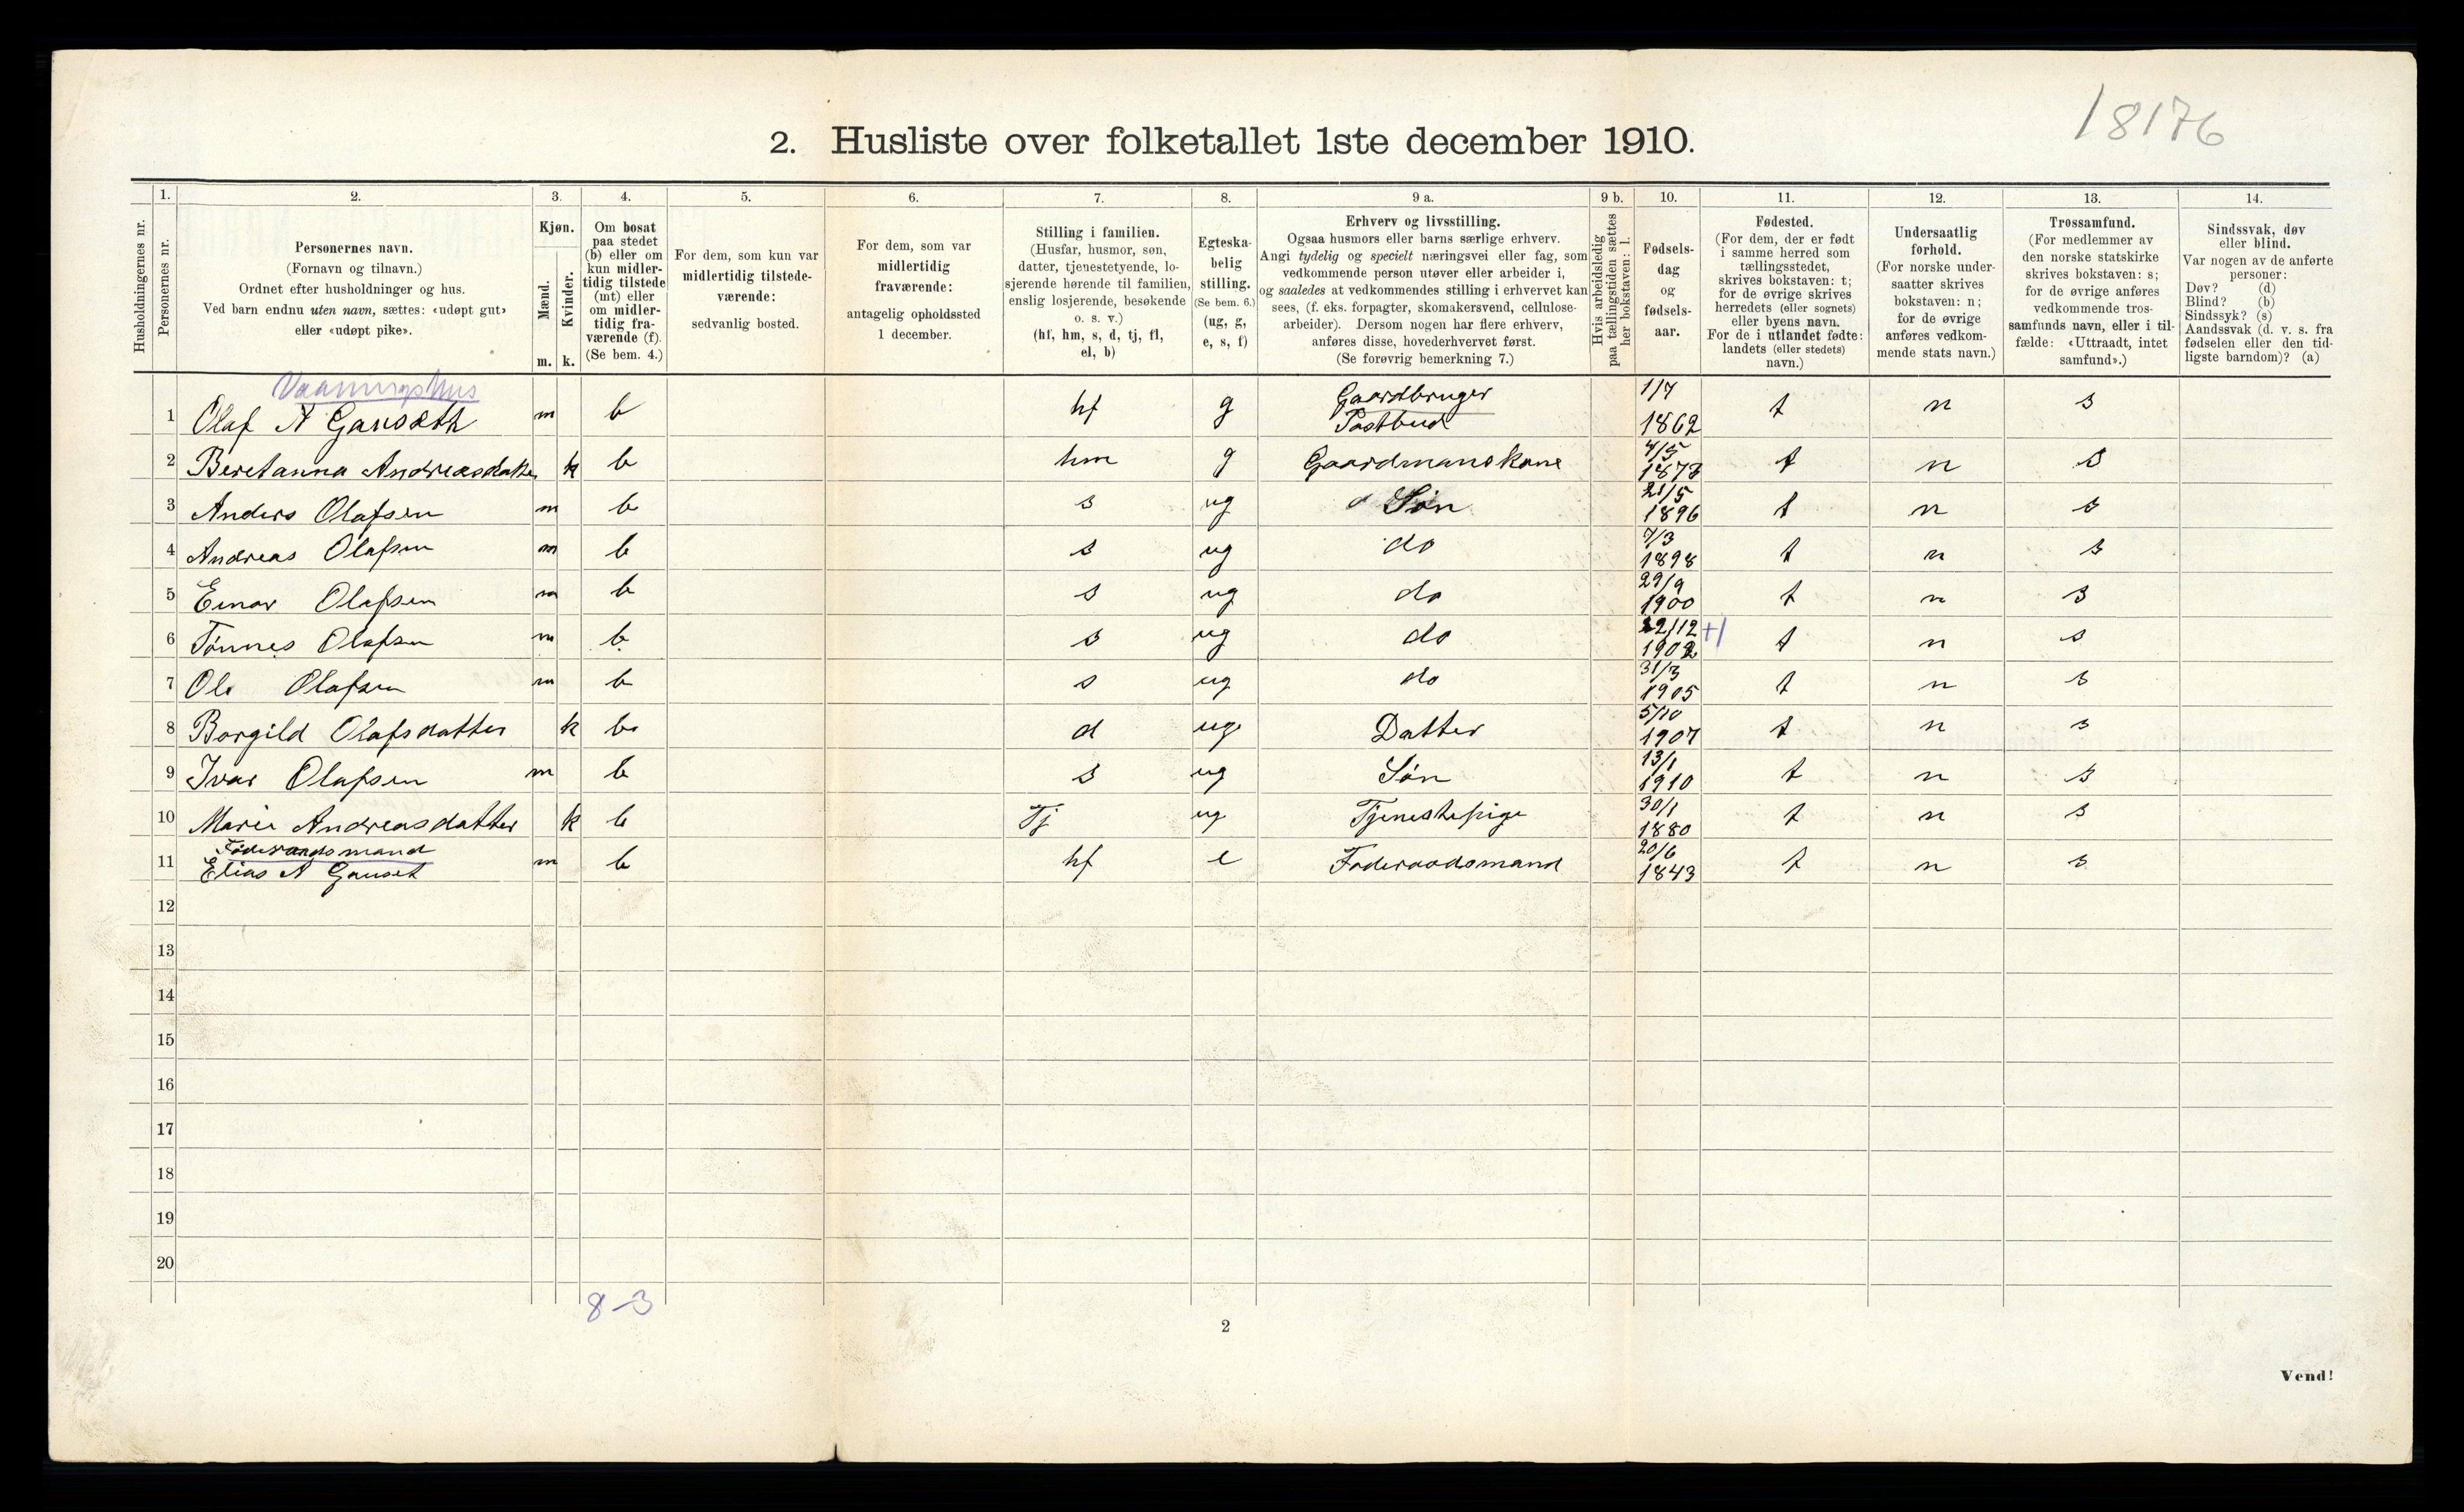 18176
2. Husliste over folketallet 1ste december 1910.
Husholdningernes nr.
1.
Personernes nr.
2.
Personernes navn.
(Fornavn og tilnavn.)
Ordnet efter husholdninger og hus.
Ved barn endnu uten navn, sættes: «udøpt gut»
eller «udøpt pike».
3.
Kjøn.
Mænd.
m.
Kvinder.
k.
4.
Om bosat
paa stedet
(b) eller om
kun midler-
tidig tilstede
(mt) eller
om midler-
tidig fra-
værende (f).
(Se bem. 4.)
5.
For dem, som kun var
midlertidig tilstede-
værende:
sedvanlig bosted.
6.
For dem, som var
midlertidig
fraværende:
antagelig opholdssted
1 december.
7.
Stilling i familien.
(Husfar, husmor, søn,
datter, tjenestetyende, lo-
sjerende hørende til familien,
enslig losjerende, besøkende
o. s. v.)
(hf, hm, s, d, tj, fl,
el, b)
8.
Egteska-
belig
stilling.
(Se bem. 6.)
(ug, g,
e, s, f)
9 a.
Erhverv og livsstilling.
Ogsaa husmors eller barns særlige erhverv.
Angi tydelig og specielt næringsvei eller fag, som
vedkommende person utøver eller arbeider i,
og saaledes at vedkommendes stilling i erhvervet kan
sees, (f. eks. forpagter, skomakersvend, cellulose-
arbeider). Dersom nogen har flere erhverv,
anføres disse, hovederhvervet først.
(Se forøvrig bemerkning 7.)
9 b.
Hvis arbeidsledig
paa tællingstiden sættes
her bokstaven: l.
10.
Fødsels-
dag
og
fødsels-
aar.
11.
Fødested.
(For dem, der er født
i samme herred som
tællingsstedet,
skrives bokstaven: t;
for de øvrige skrives
herredets (eller sognets)
eller byens navn.
For de i utlandet fødte:
landets (eller stedets)
navn.)
12.
Undersaatlig
forhold.
(For norske under-
saatter skrives
bokstaven: n;
for de øvrige
anføres vedkom-
mende stats navn.)
13.
Trossamfund.
(For medlemmer av
den norske statskirke
skrives bokstaven: s;
for de øvrige anføres
vedkommende tros-
samfunds navn, eller i til-
fælde: «Uttraadt, intet
samfund».)
14.
Sindssvak, døv
eller blind.
Var nogen av de anførte
personer:
Døv? (d)
Blind? (b)
Sindssyk? (s)
Aandssvak (d. v. s. fra
fødselen eller den tid-
ligste barndom)? (a)
Vaaningshus
1 Olaf A Gansæth m b hf g Gaardbruger Postbud 1/7 1862 t n s
2 Beretanna Andreasdatter k b hm g Gaardmanskone 4/5 1873 t n s
3 Anders Olafsen m b s ug Søn 21/5 1896 t n s
4 Andreas Olafsen m b s ug do 7/3 1898 t n s
5 Einar Olafsen m b s ug do 29/9 1900 t n s
6 Tønnes Olafsen m b s ug do 22/12 1902 +1 t n s
7 Ole Olafsen m b s ug do 31/3 1905 t n s
8 Borgild Olafsdatter k b d ug Datter 5/10 1907 t n s
9 Ivar Olafsen m b s ug Søn 13/1 1910 t n s
10 Marie Andreasdatter k b Tj ug Tjenestepige 30/1 1880 t n s
Føderaadsmand
11 Elias A Ganset m b hf e Føderaadsmand 20/6 1843 t n s
12
13
14
15
16
17
18
19
20
8-3
2
Vend!